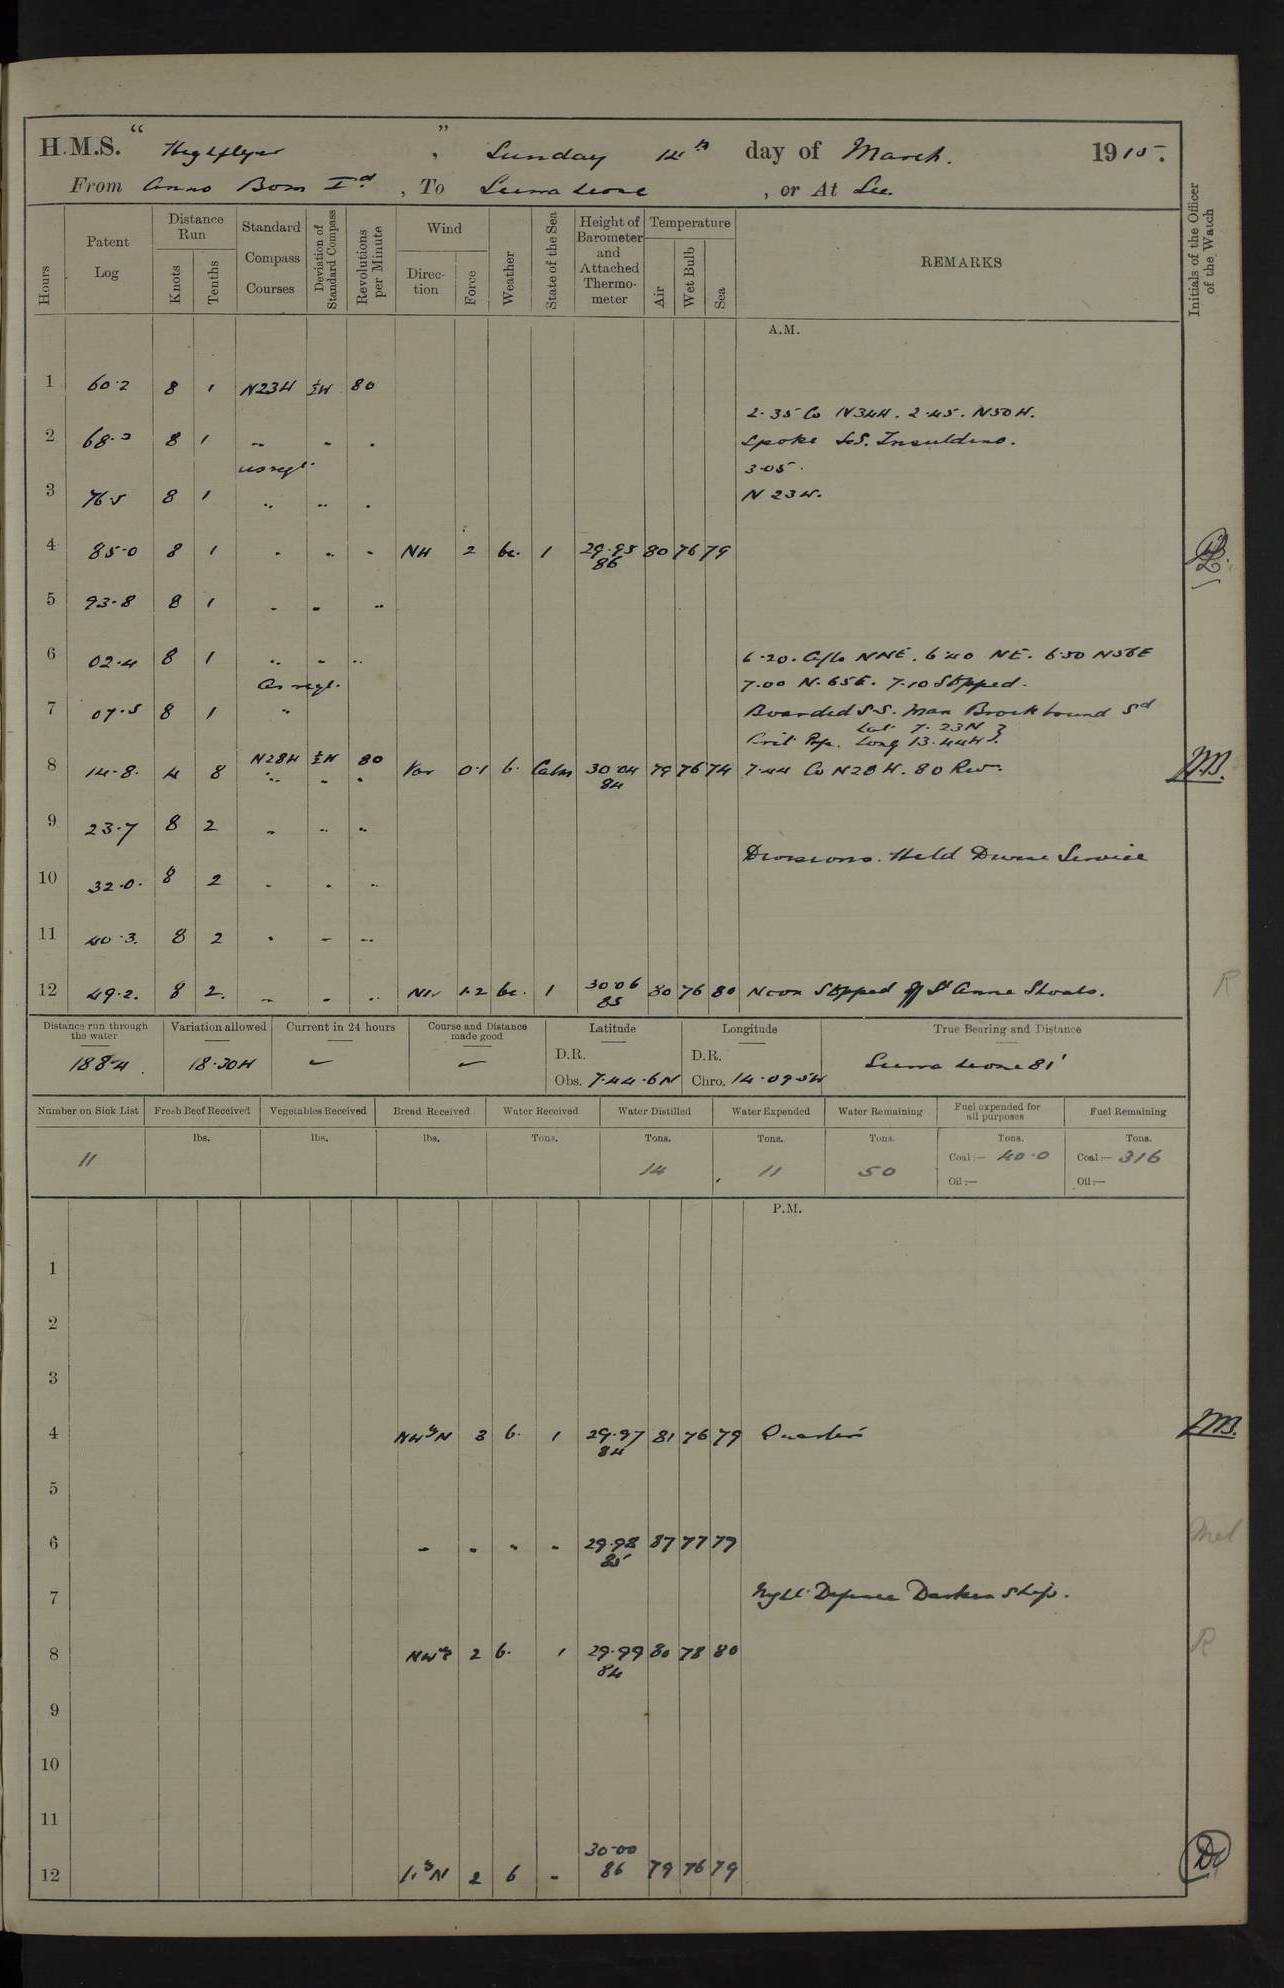 H.M.S. “ Highflyer ” , Sunday 14th day of March. 1915.
From Anno Bom Id , To Sierra Leone , or At Sea.
Hours Patent Log Distance Run Knots Tenths Standard Compass Courses Deviation of Standard Compass Revolutions per Minute Wind Direction Force Weather State of the Sea Height of Barometer and Attached Thermometer Temperature Air Wet Bulb Sea REMARKS Initials of the Officer of the Watch
A.M.
1 60.2 8 1 N23W ½W 80
2.35 Co N34W. 2.45. N50W.
2 68.3 8 1 " " " Spoke SS.
as reqd. 3.05.
3 76.5 8 1 " " " N 23W.
4 85.0 8 1 " " " NW 2 bc. 1 29.95 80 76 79
86
5 93.8 8 1 " " "
6 02.4 8 1 " " " 6.20. A/co NNE. 6.40 NE. 6.50 N56E
As reqd. 7.00 N.65E. 7.10 Stopped.
7 07.5 8 1 " Boarded S.S. Max Brock bound Sd
Brit. Lat. 7.23N Long 13.44W }.
N28W ½W 80
8 14.8. 4 8 " " " Var 0.1 b. Calm 30.04 79 76 74 7.44 Co N28W. 80 Rev.
84
9 23.7 8 2 " " "
Divisions. Held Divine Service
10 32.0. 8 2 " " "
11 40.3. 8 2 " " "
12 49.2. 8 2. " " " 1.2 bc. 1 30.06 80 76 80 Noon Stopped off St Anne Shoals. R
85
Distance run through the water Variation allowed Current in 24 hours Course and Distance made good Latitude Longitude True Bearing and Distance
188.4. 18.30W ✓ ✓ D.R. D.R. Sierra Leone 81'
Obs. 7.44.6N Chro. 14.09.5W
Number on Sick List Fresh Beef Received Vegetables Received Bread Received Water Received Water Distilled Water Expended Water Remaining Fuel expended for all purposes Fuel Remaining
lbs. lbs. lbs. Tons. Tons. Tons. Tons. Tons. Tons.
11 14 11 50 Coal:— 40.0 Coal:— 316
Oil:— Oil:—
P.M.
1
2
3
4 NWbN 3 b. 1 29.97 81 76 79 Quarters
84
5
6 " " " " 29.98 87 77 79
85
7 Night Defence Darken Ship.
8 2 b. 1 29.99 80 78 80 R
84
9
10
11
30.00
12 2 b " 86 79 76 79